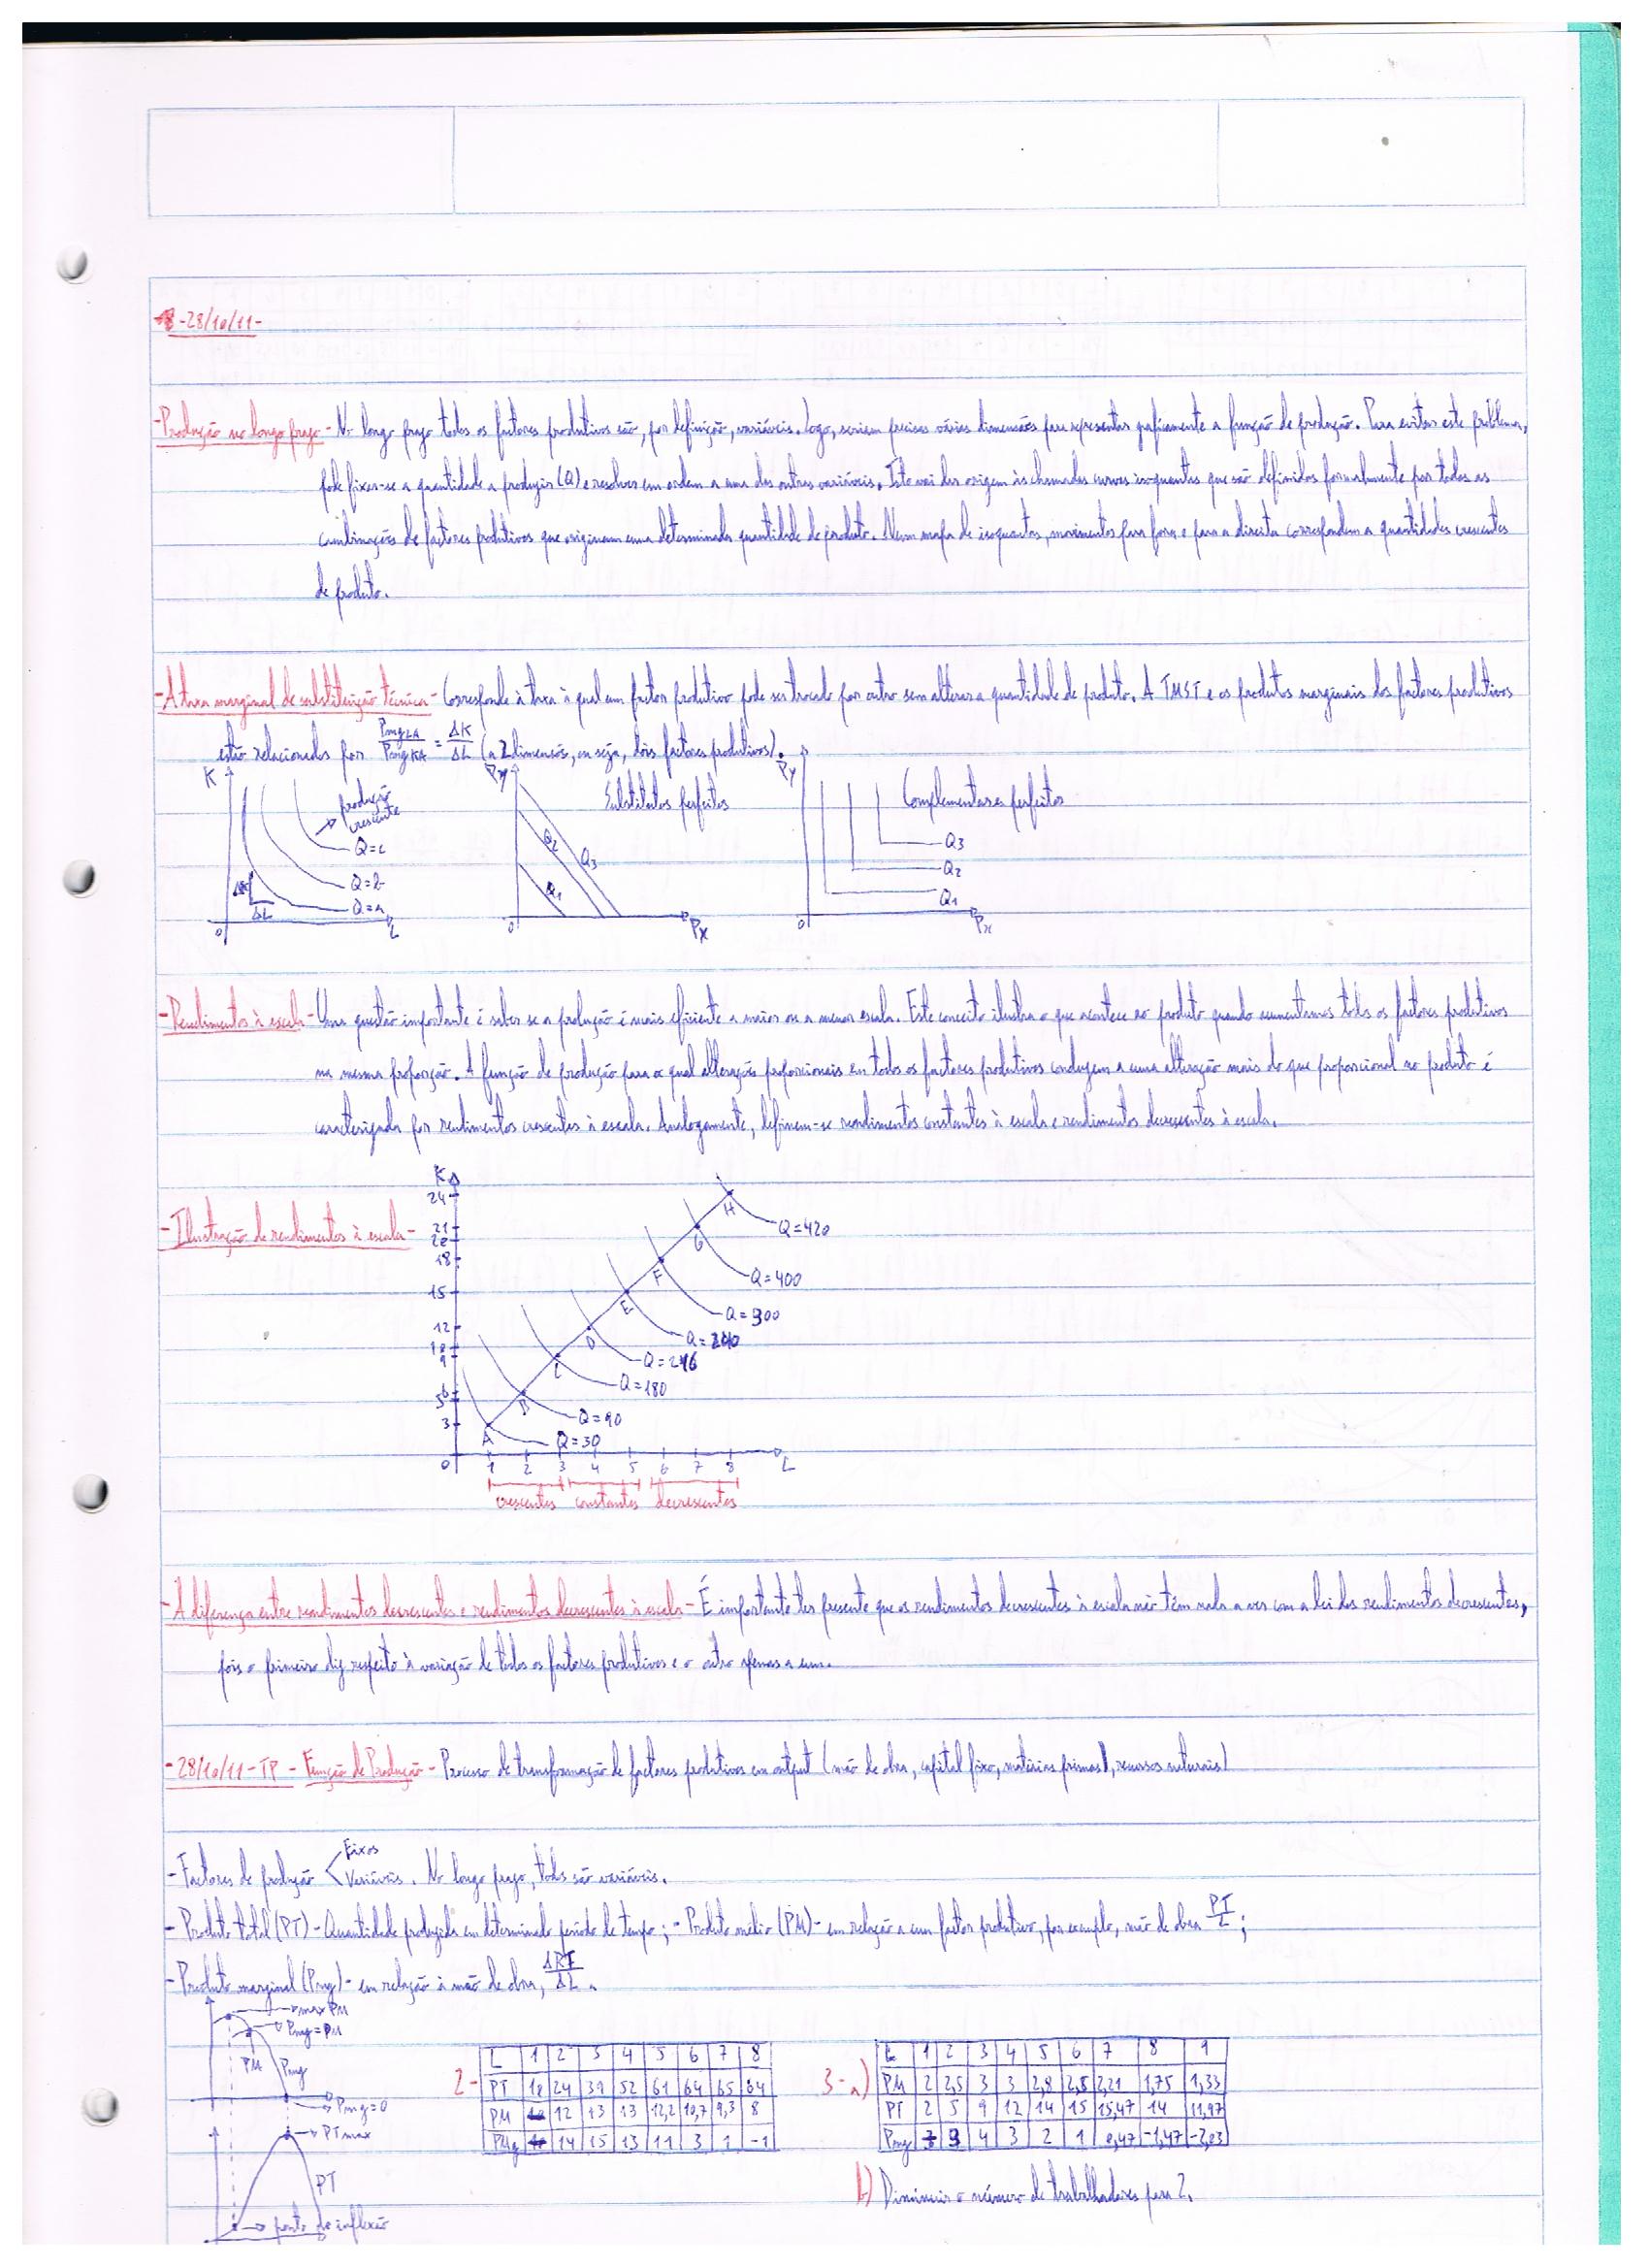 -28/10/11-
-Produção no longo prazo- No longo prazo todos os factores produtivos são, por definição, variáveis. Logo, seriam precisas várias dimensões para representar graficamente a função de produção. Para evitar este problema,
pode fixar-se a quantidade a produzir (Q) e resolver em ordem a uma das outras variáveis. Isto vai dar origem às chamadas curvas isoquantas que são definidas formalmente por todas as
combinações de factores produtivos que originam uma determinada quantidade de produto. Num mapa de isoquantas, movimentos para fora e para a direita correspondem a quantidades crescentes
de produto.
-A taxa marginal de substituição técnica- Corresponde à taxa à qual um factor produtivo pode ser trocado por outro sem alterar a quantidade de produto. A TMST e os produtos marginais dos factores produtivos
estão relacionados por PmgLA/PmgKA = ΔK/ΔL (a 2 dimensões, ou seja, dois factores produtivos).
K produção crescente Q=c Q=b Q=a ΔK ΔL 0 L
Py Substitutos perfeitos Q1 Q2 Q3 0 Px
Py Complementares perfeitos Q3 Q2 Q1 0 Px
-Rendimentos à escala- Uma questão importante é saber se a produção é mais eficiente a maior ou a menor escala. Este conceito ilustra o que acontece ao produto quando aumentamos todos os factores produtivos
na mesma proporção. A função de produção para a qual alterações proporcionais em todos os factores produtivos conduzem a uma alteração mais do que proporcional no produto é
caracterizada por rendimentos crescentes à escala. Analogamente, definem-se rendimentos constantes à escala e rendimentos decrescentes à escala.
-Ilustração de rendimentos à escala-
K
24
21
20
18
15
12
10
9
6
5
3
0 1 2 3 4 5 6 7 8 L
A B C D E F G H
Q=420
Q=400
Q=300
Q=180
Q=90
Q=30
crescentes constantes decrescentes
-A diferença entre rendimentos decrescentes e rendimentos decrescentes à escala- É importante ter presente que os rendimentos decrescentes à escala não têm nada a ver com a lei dos rendimentos decrescentes,
pois o primeiro diz respeito à variação de todos os factores produtivos e o outro apenas a um.
-28/10/11-TP - Função de Produção - Processo de transformação de factores produtivos em output (mão de obra, capital fixo, matérias primas, recursos naturais)
-Factores de produção < Fixos
Variáveis. No longo prazo, todos são variáveis.
-Produto total (PT)- Quantidade produzida em determinado período de tempo; -Produto médio (PM)- em relação a um factor produtivo, por exemplo, mão de obra PT/L;
-Produto marginal (Pmg)- em relação à mão de obra, ΔPT/ΔL.
max PM
Pmg=PM
PM Pmg
Pmg=0
PTmax
PT
ponto de inflexão
2-
L 1 2 3 4 5 6 7 8
PT 10 24 39 52 61 64 65 64
PM 10 12 13 13 12,2 10,7 9,3 8
PMg 14 15 13 11 3 1 -1
3-a)
L 1 2 3 4 5 6 7 8 9
PM 2 2,5 3 3 2,8 2,5 2,21 1,75 1,33
PT 2 5 9 12 14 15 15,47 14 11,97
Pmg 3 4 3 2 1 0,47 -1,47 -2,03
b) Diminuir o número de trabalhadores para 7.